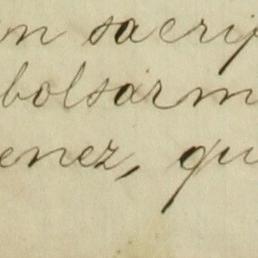 n sacrif
bolsarm
enez, qu